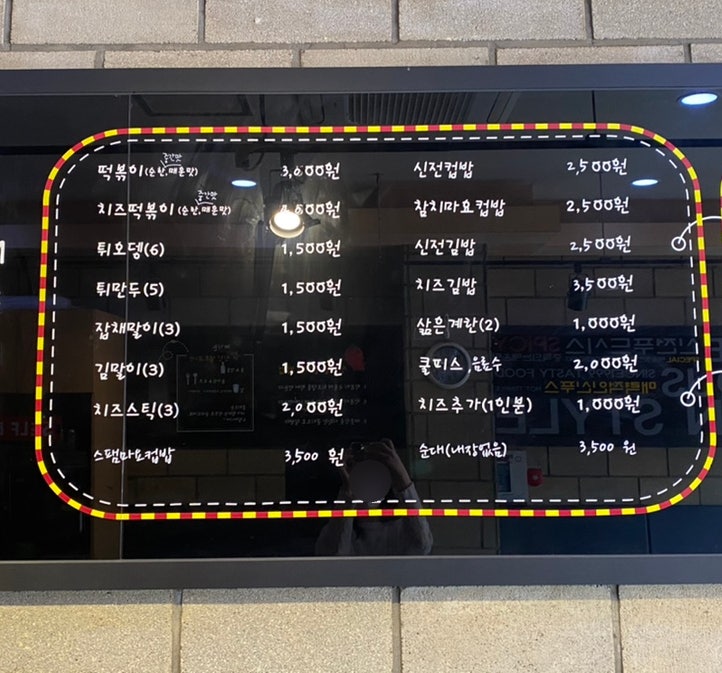 떡볶이(순한,매운맛) 중간맛 3,000원
치즈떡볶이(순한,매운맛) 중간맛
튀오뎅(6) 1,500원
튀만두(5) 1,500원
잡채말이(3) 1,500원
김말이(3) 1,500원
치즈스틱(3) 2,000원
스팸마요컵밥 3,500 원
신전컵밥 2,500원
참치마요컵밥 2,500원
신전김밥 2,500원
치즈김밥 3,500원
삶은계란(2) 1,000원
쿨피스 음료수 2,000원
치즈추가(1인분) 1,000원
순대(내장없음) 3,500 원